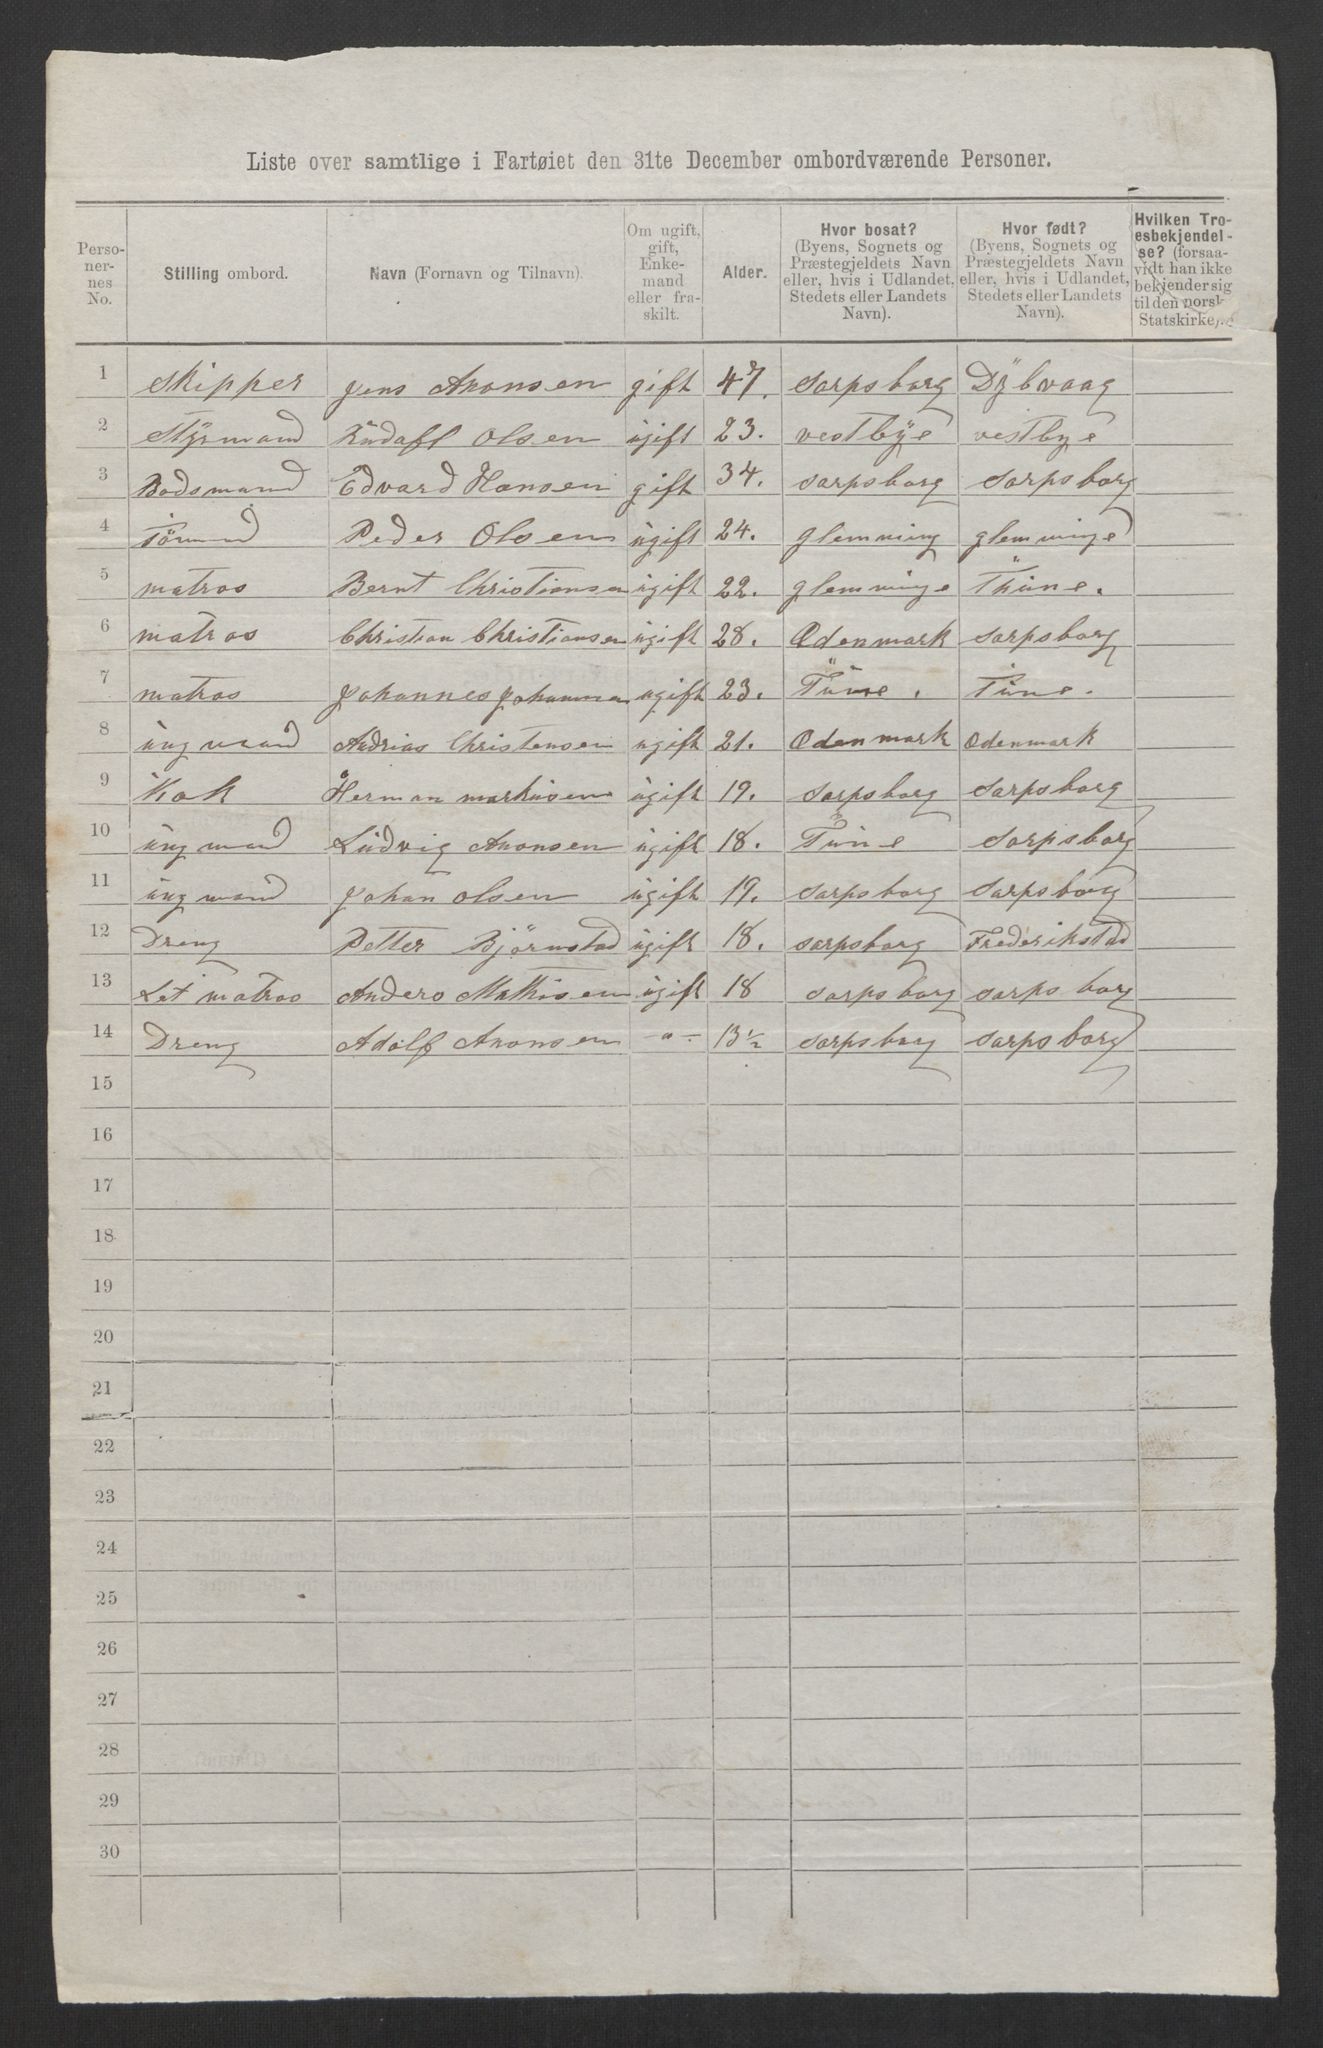 Liste over samtlige i Fartøiet den 31te December ombordværende Personer.
Perso-
ner-
nes
No.
Stilling ombord.
Navn (Fornavn og Tilnavn).
Om ugift,
gift,
Enke-
mand
eller fra-
skilt.
Alder.
Hvor bosat?
(Byens, Sognets og
Præstegjeldets Navn
eller, hvis i Udlandet,
Stedets eller Landets
Navn).
Hvor født?
(Byens, Sognets og
Præstegjeldets Navn
eller, hvis i Udlandet,
Stedets eller Landets
Navn).
Hvilken Tro-
esbekjendel-
se? (forsaa-
vidt han ikke
bekjender sig
til den norsk
Statskirke).
1 Skipper Jens Aronsen gift 47. Sarpsborg Dÿbvaag
2 Stÿrmand Rudolf Olsen ugift 23. vestbÿe vestbye
3 Bodsmand Edvard Hansen gift 34. Sarpsborg Sarpsborg
4 Peder Olsen ugift 24. glemming glemminge
5 matros Bernt Christiansen ugift 22. glemminge Thune.
6 matros Christian Christiansen ugift 28. Ødenmark Sarpsborg
7 matros Johannes Johannsen ugift 23. Tune. Tune.
8 ung mand Andrias Christensen ugift 21. Ødenmark Ødenmark
9 Kok Herman markusen ugift 19. Sarpsborg Sarpsborg
10 ung mand Ludvig Aronsen ugift 18. Tune Sarpsborg
11 ung mand Johan Olsen ugift 19. Sarpsborg Sarpsborg
12 Dreng Petter Bjørnstad ugift 18. sarpsborg Frederikstad
13 Let matros Anders Mathisen ugift 18 Sarpsborg sarpsborg
14 Dreng Adolf Aronsen -"- 13½ sarpsborg sarpsborg
15
16
17
18
19
20
21
22
23
24
25
26
27
28
29
30